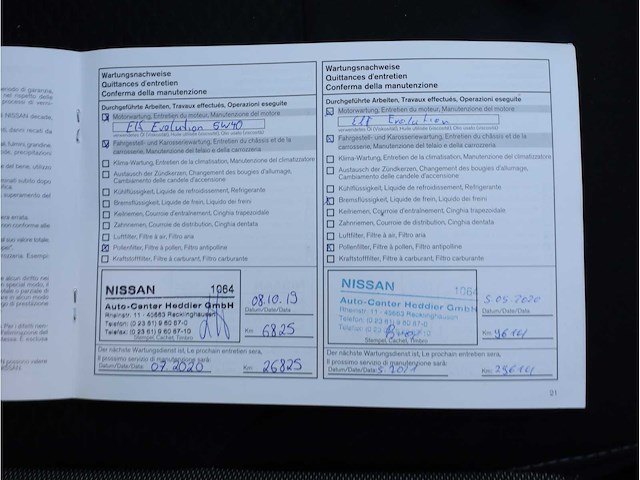 Wartungsnachweise
Quittances d'entretien
Conferma della manutenzione
Durchgeführte Arbeiten, Travaux effectués, Operazioni eseguite
Motorwartung, Entretien du moteur, Manutenzione del motore
Elf Evolution 5W40
verwendetes Öl (Viskosität), Huile utilisée (viscosité), Olio usato (viscosità)
Fahrgestell- und Karosseriewartung, Entretien du châssis et de la
carrosserie, Manutenzione del telaio e della carrozzeria
Klima-Wartung, Entretien de la climatisation, Manutenzione del climatizzatore
Austausch der Zündkerzen, Changement des bougies d'allumage,
Cambiamento delle candele d'accensione
Kühlflüssigkeit, Liquide de refroidissement, Refrigerante
Bremsflüssigkeit, Liquide de frein, Liquido dei freni
Keilriemen, Courroie d'entraînement, Cinghia trapezoidale
Zahnriemen, Courroie de distribution, Cinghia dentata
Luftfilter, Filtre à air, Filtro aria
Pollenfilter, Filtre à pollen, Filtro antipolline
Kraftstofffilter, Filtre à carburant, Filtro carburante
NISSAN 1064
Auto-Center Heddier GmbH
Rheinstr. 11 - 45663 Recklinghausen
Telefon: (0 23 61) 9 60 67-0
Telefax: (0 23 61) 9 60 67-10
Stempel, Cachet, Timbro
08.10.19
Datum/Date/Data
Km: 6825
Der nächste Wartungsdienst ist, Le prochain entretien sera,
Il prossimo servizio di manutenzione sarà:
Datum/Date/Data: 07.2020 Km: 26825
Wartungsnachweise
Quittances d'entretien
Conferma della manutenzione
Durchgeführte Arbeiten, Travaux effectués, Operazioni eseguite
Motorwartung, Entretien du moteur, Manutenzione del motore
Elf Evolution
verwendetes Öl (Viskosität), Huile utilisée (viscosité), Olio usato (viscosità)
Fahrgestell- und Karosseriewartung, Entretien du châssis et de la
carrosserie, Manutenzione del telaio e della carrozzeria
Klima-Wartung, Entretien de la climatisation, Manutenzione del climatizzatore
Austausch der Zündkerzen, Changement des bougies d'allumage,
Cambiamento delle candele d'accensione
Kühlflüssigkeit, Liquide de refroidissement, Refrigerante
Bremsflüssigkeit, Liquide de frein, Liquido dei freni
Keilriemen, Courroie d'entraînement, Cinghia trapezoidale
Zahnriemen, Courroie de distribution, Cinghia dentata
Luftfilter, Filtre à air, Filtro aria
Pollenfilter, Filtre à pollen, Filtro antipolline
Kraftstofffilter, Filtre à carburant, Filtro carburante
NISSAN 1064
Auto-Center Heddier GmbH
Rheinstr. 11 - 45663 Recklinghausen
Telefon: (0 23 61) 9 60 67-0
Stempel, Cachet, Timbro
5.05.2020
Datum/Date/Data
Km: 9614
Der nächste Wartungsdienst ist, Le prochain entretien sera,
Il prossimo servizio di manutenzione sarà:
Datum/Date/Data: 5.2021 Km: 29614
21